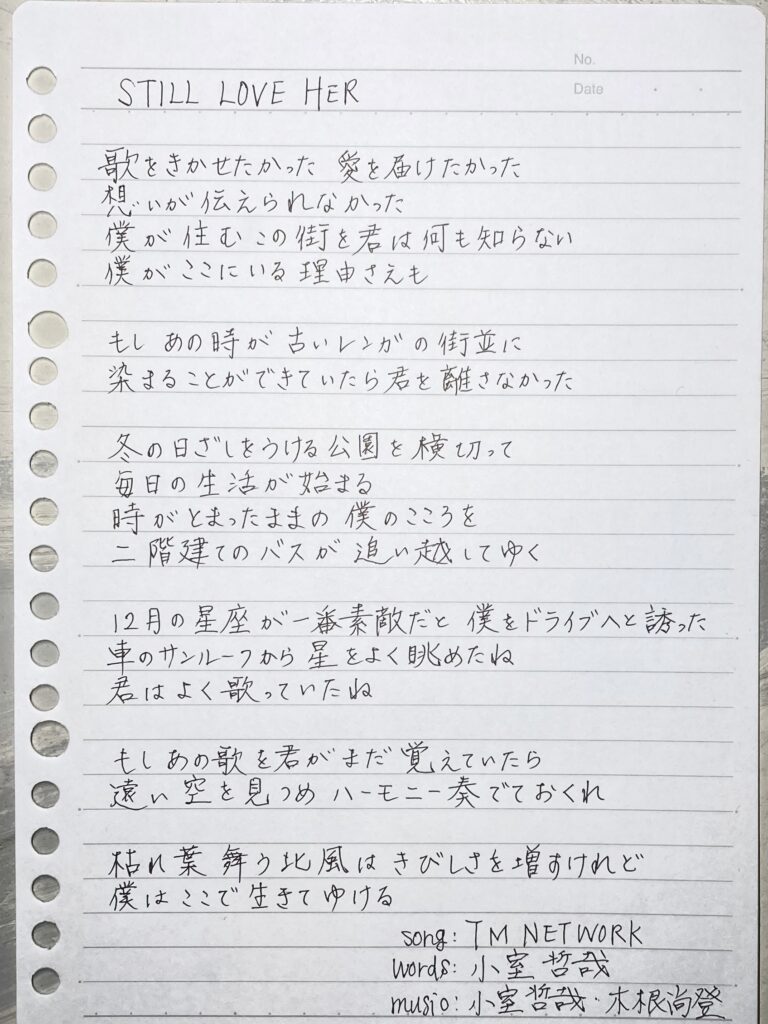 No.
Date
STILL LOVE HER
歌をきかせたかった 愛を届けたかった
想いが伝えられなかった
僕が住むこの街を君は何も知らない
僕がここにいる理由さえも
もしあの時が古いレンガの街並に
染まることができていたら君を離さなかった
冬の日ざしをうける公園を横切って
毎日の生活が始まる
時がとまったままの僕のこころを
二階建てのバスが追い越してゆく
12月の星座が一番素敵だと 僕をドライブへと誘った
車のサンルーフから星をよく眺めたね
君はよく歌っていたね
もしあの歌を君がまだ覚えていたら
遠い空を見つめハーモニー奏でておくれ
枯れ葉舞う北風はきびしさを増すけれど
僕はここで生きてゆける
song: TM NETWORK
words: 小室哲哉
music: 小室哲哉・木根尚登